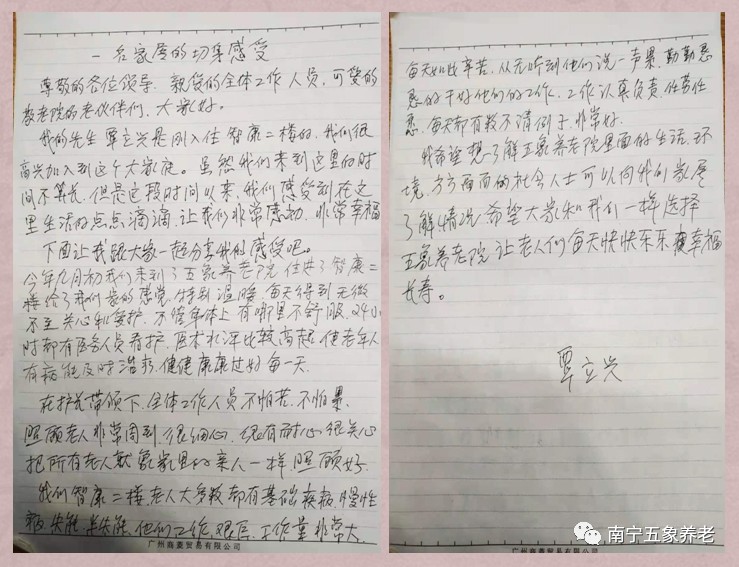 一名家属的切身感受
尊敬的各位领导、亲爱的全体工作人员,可爱的
养老院的老伙伴们,大家好。
我的先生覃立兴是刚入住智康二楼的,我们很
高兴加入到这个大家庭。虽然我们来到这里的时
间不算长,但是这段时间以来,我们感受到在这
里生活的点点滴滴,让我们非常感动、非常幸福
下面让我跟大家一起分享我的感受吧。
今年九月初我们来到了五象养老院,住进了智康二
楼给了我们家的感觉,特别温暖,每天得到无微
不至关心和爱护,不管身体上有哪里不舒服,24小
时都有医务人员看护,医术水平比较高超,使老年人
有病能及时治疗,健健康康过好每一天。
在护长带领下,全体工作人员不怕苦、不怕累、
照顾老人非常周到,很细心,很有耐心,很关心
把所有老人就象家里的亲人一样,照顾好。
我们智康二楼,老人大多数都有基础疾病,慢性
病,失能,半失能,他们工作,艰巨,工作量非常大
广州商菱贸易有限公司
每天如此辛苦,从无听到他们说一声累,勤勤恳
恳的干好他们的工作,工作认真负责,任劳任
怨,每天都有数不清例子,非常好。
我希望想了解五象养老院里面的生活、环
境,方方面面的社会人士可以向我们家属
了解情况,希望大家和我们一样选择
五象养老院,让老人们每天快快乐乐,幸福
长寿。
覃立兴
广州商菱贸易有限公司
南宁五象养老